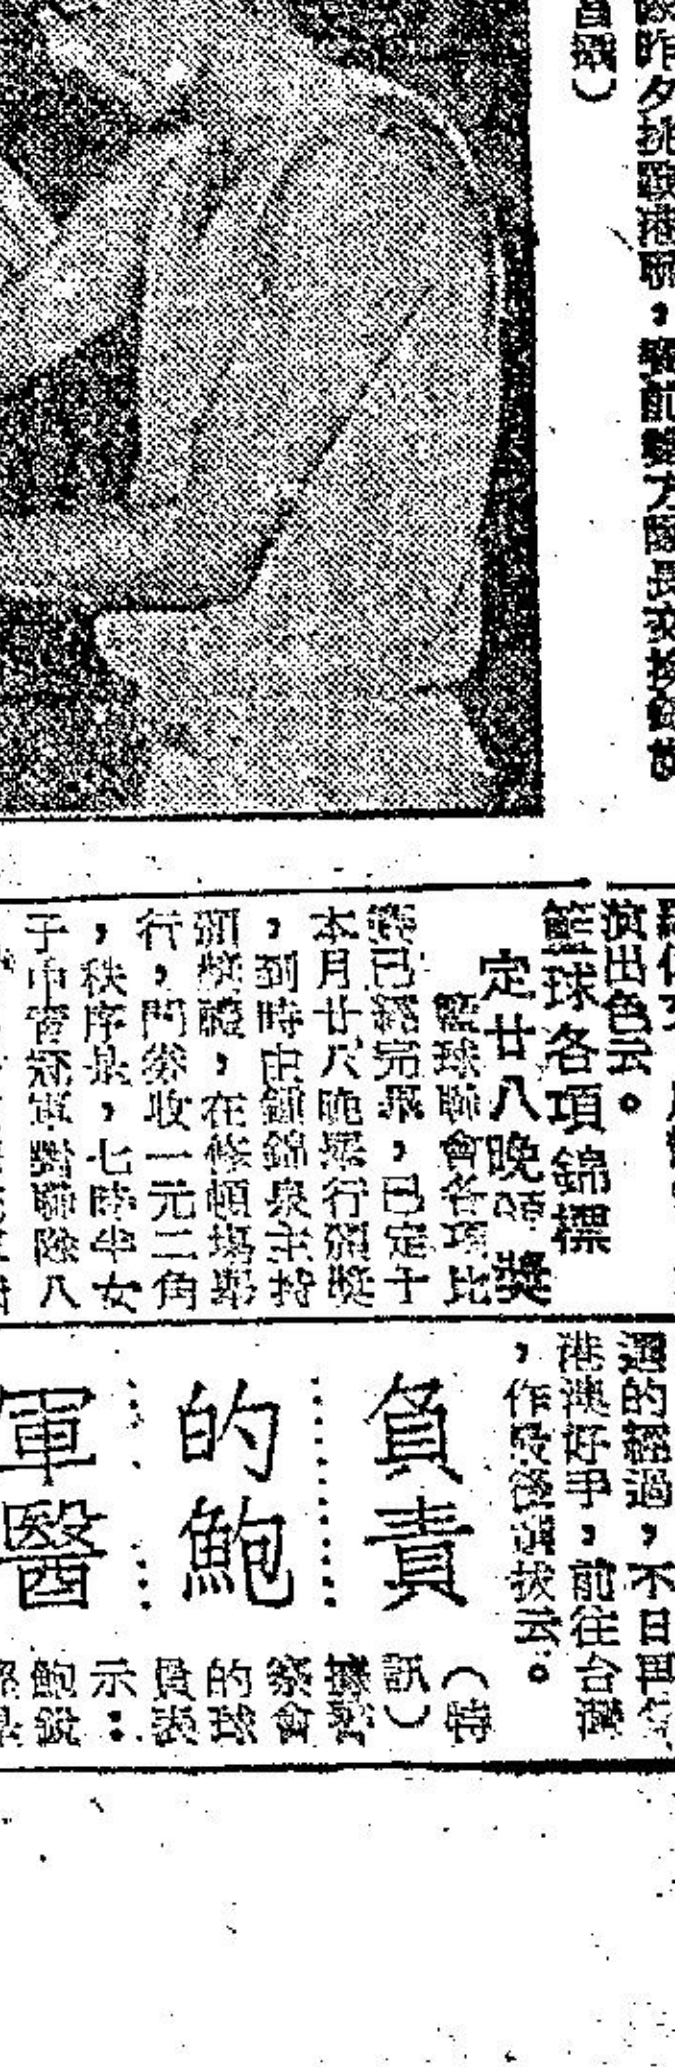 隊昨夕挑戰港聯，賽前雙方隊長交換錦旗
攝）
演出色云。
籃球各項錦標
定廿八晚頒獎
籃球聯會各項比
賽已經完畢，已定于
本月廿八晚舉行頒獎
，到時由鍾錦泉主持
頒獎禮，在修頓場舉
行，門券收一元二角
，秩序是，七時半女
子中青冠軍對聯隊八
選的經過，不日再
港漢好手，前往台灣
，作最後選拔云。
負責
的鮑
軍醫
（特
訊）
據警
察會
的球
員表
示：
鮑銳